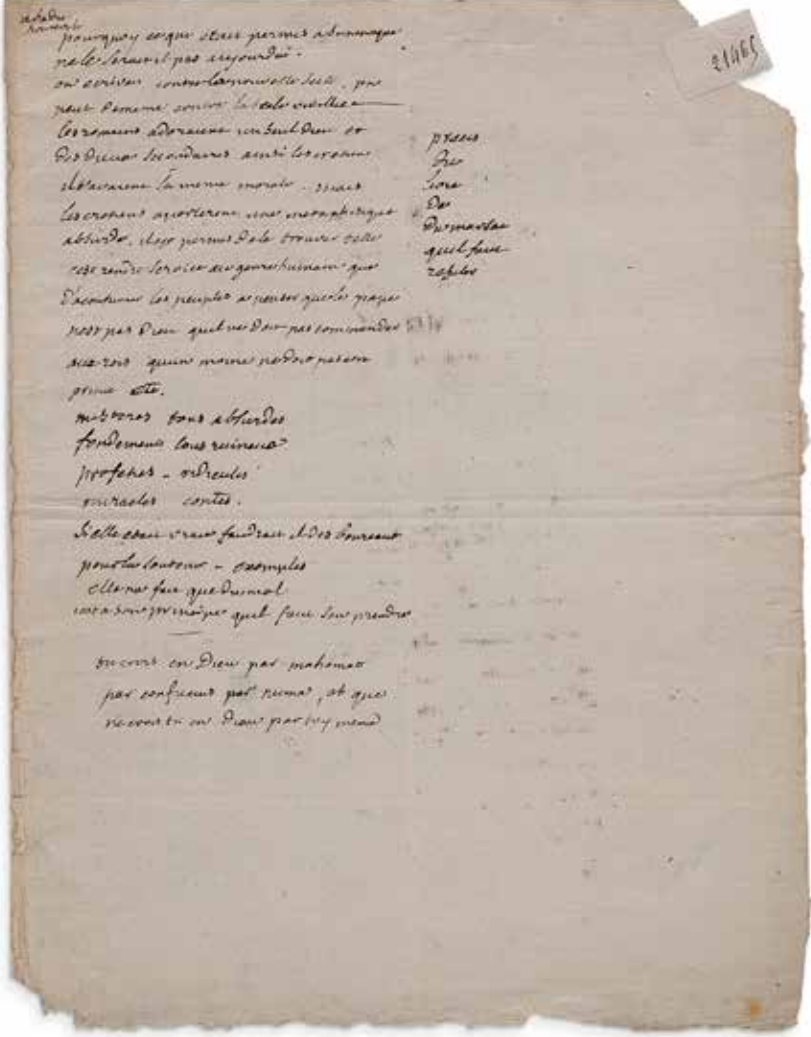 21465
pourquoy ce qui etait permis a
ne le serait il pas aujourduÿ.
on ecrivait contre la nouvelle secte, on
peut de meme contre la secte vieillie
les romains adoraient un seul dieu et
des dieux secondaires ainsi les cretiens
ils avaient la meme morale. mais
les cretiens aporterent une metaphisique
absurde. il est permis de le trouver telle
cest rendre service au genre humain que
d'acoutumer les peuples a penser que le pape
nest pas dieu quil ne doit pas commander
aux rois quun moine ne doit pas etre
prince etc.
misteres tous absurdes
fondements tous ruineux
profeties - ridicules
miracles contes.
si elle etait vraie faudrait il des boureaux
pour la soutenir - exemples
elle ne fait que du mal
cest a son principe quil faut sen prendre
tu crois en Dieu par mahomet
par confucius par numa, et que
ne crois tu en Dieu par toy meme
precis
du
livre
de
quil faut